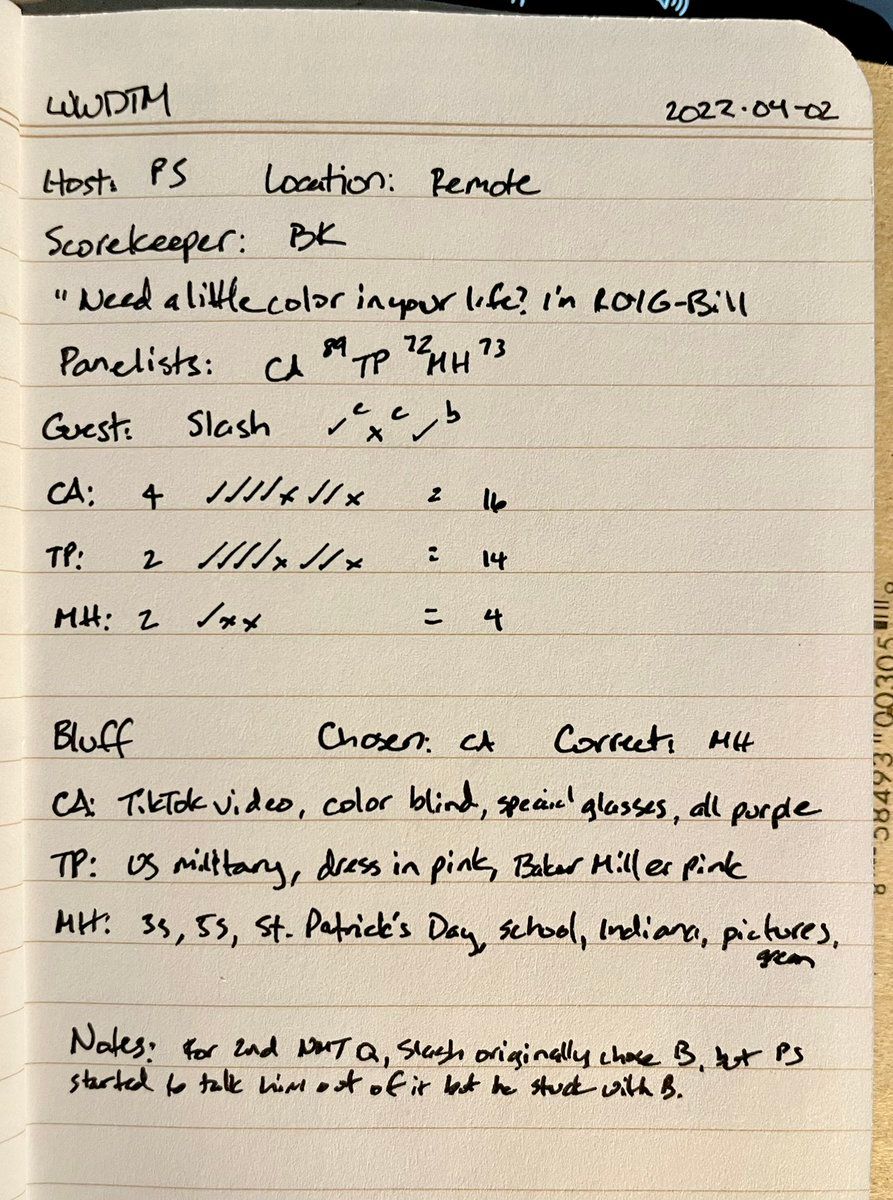 WWDTM 2022-04-02
Host: PS Location: Remote
Scorekeeper: BK
"Need a little color in your life? I'm ROYG-Bill
Panelists: CA 89 TP 72 MH 73
Guest: Slash ✓c xc ✓b
CA: 4 ✓✓✓✓x✓✓x = 16
TP: 2 ✓✓✓✓x✓✓x = 14
MH: 2 ✓xx = 4
Bluff Chosen: CA Correct: MH
CA: TikTok video, color blind, special glasses, all purple
TP: US military, dress in pink, Baker Miller pink
MH: 3s, 5s, St. Patrick's Day, school, Indiana, pictures,
green
Notes: For 2nd NMJ Q, Slash originally chose B, but PS
started to talk him out of it but he stuck with B.
8 58493 00305